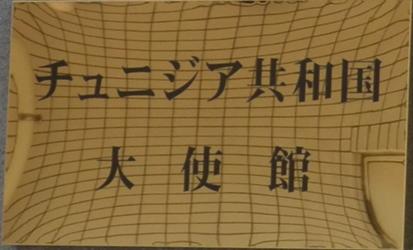 チュニジア共和国
大使館